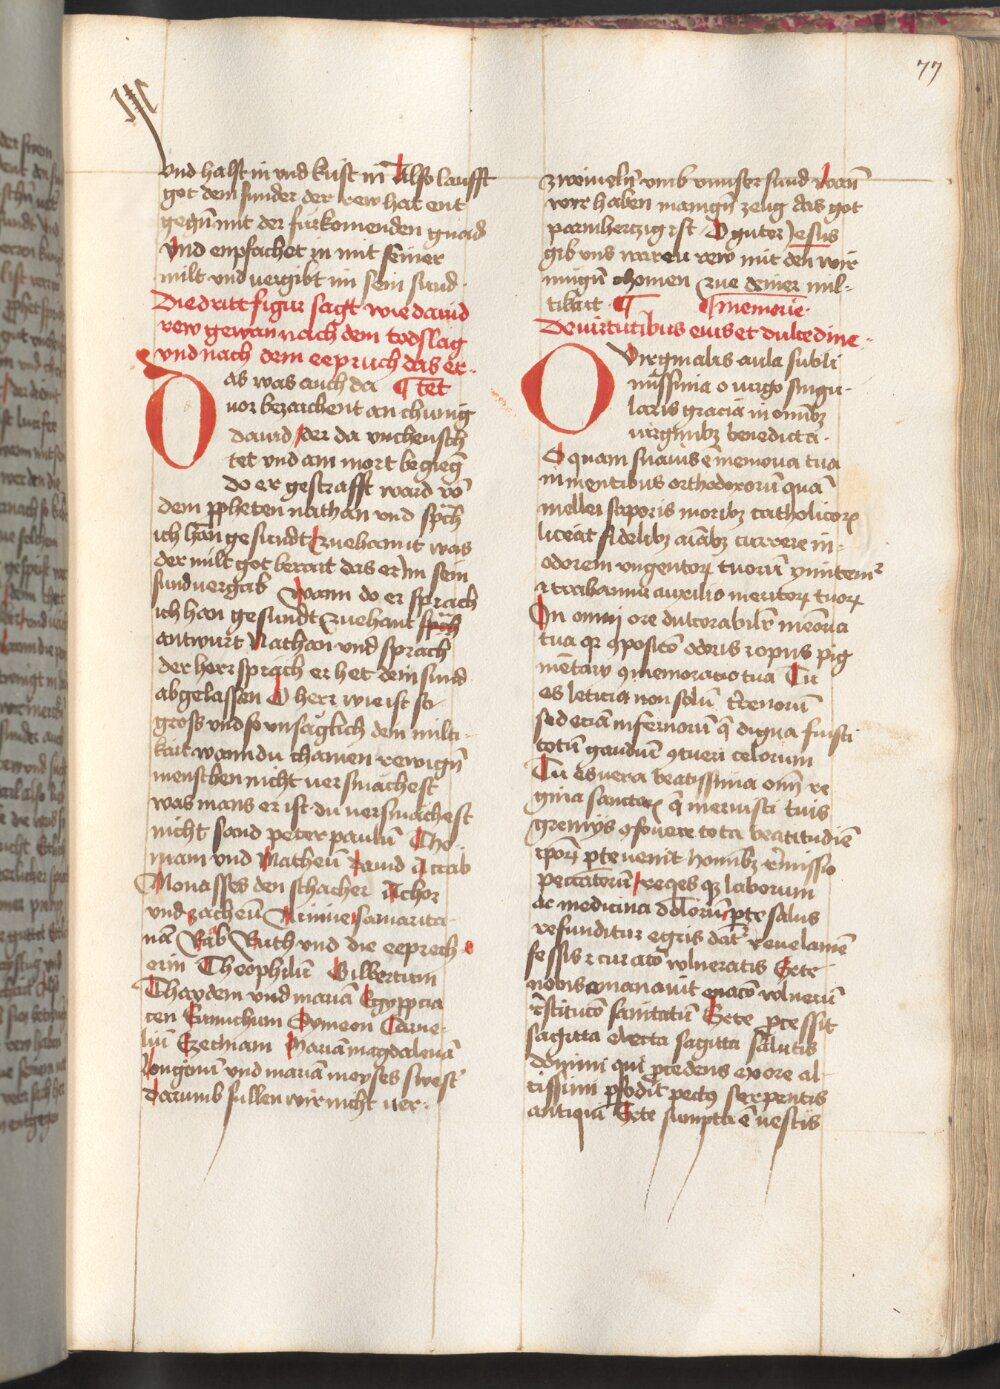 77
und halst in und kust in Also laufft
got dem sunder der rew hat ent
gegn mit der furkomenden gnad
Und enpfachet in mit seiner
milt und vergibt im sein sund
Die dritt figur sagt wie david
rew gewan nach dem todslag
und nach dem eepruch das er
as was auch da tet
vor bezaichent an chunig
david der da unchensch
tet und am mort begieng
do er gestrafft ward vo
dem ppheten nathan und spch
ich han gesundt zuehant was
der milt got berait das er im sein
sund vergab Wann do er sprach
ich han gesundt zuehant
antwurt Nathan und sprach
der herr sprach er het dein sund
abgelassen O herr wie ist so
gross und so unsaglich dein milti
kait wann du chainen rewign
menschen nicht versmachest
was mans er ist du versmachest
nicht sand peter paulu Tho
mam und Matheu david Acab
Monasses den schacher Achor
und zacheu Ninive samarita
na Rab Ruth und die eeprech
erin Theophilu Gilbertum
Thaydem und maria Egyppcia
cen Eunuchum Symeon Corne
liu Ezechiam Maria magdalena
Longinu und maria moyses swest
darumb sullen wir nicht ver
zweiveln umb unnser sund wan
wir haben manign zeug das got
parmhertzig ist O guter Jesus
gib uns waren rew mit den wir
mugn chomen zue deiner mil
tikait memorie
De virtutibus eius et dulcedine
O virginalis aula subli
missima o virgo singu
laris gracia in omibz
virginibz benedicta
O quam suavis e memoria tua
in mentibus orthodoxoru qua
mellei saporis moribz catholicor
liceat fidelibz aiabz currere in
odorem ungentor tuoru
trahamur auxilio meritor tuor
In omni ore dulcorabilr memoria
tua qr oposicio odoris opus pig
mentary omemoracio tua Tu
es leticia non solu terrenoru
sed eciam infernoru q digna fuisti
totu gaudiu otueri celorum
Tu es vera beatissima omn re
gina sanctar q meruisti tuis
gremys ofovere tota beatitudie
pter venit hominibz remissio
peccatorum reqes qz laborum
ac medicina doloru per te salus
refunditur egris dat revelamen
fessis curato vulneratis Ex te
nobis emanavit vulneru
restitucio sanitatu Ex te processit
sagitta electa sagitta salutis
domini qui pcedens ex ore al
tissimi pfodit pectus serpentis
antiqui Ex te sumpta e vestis